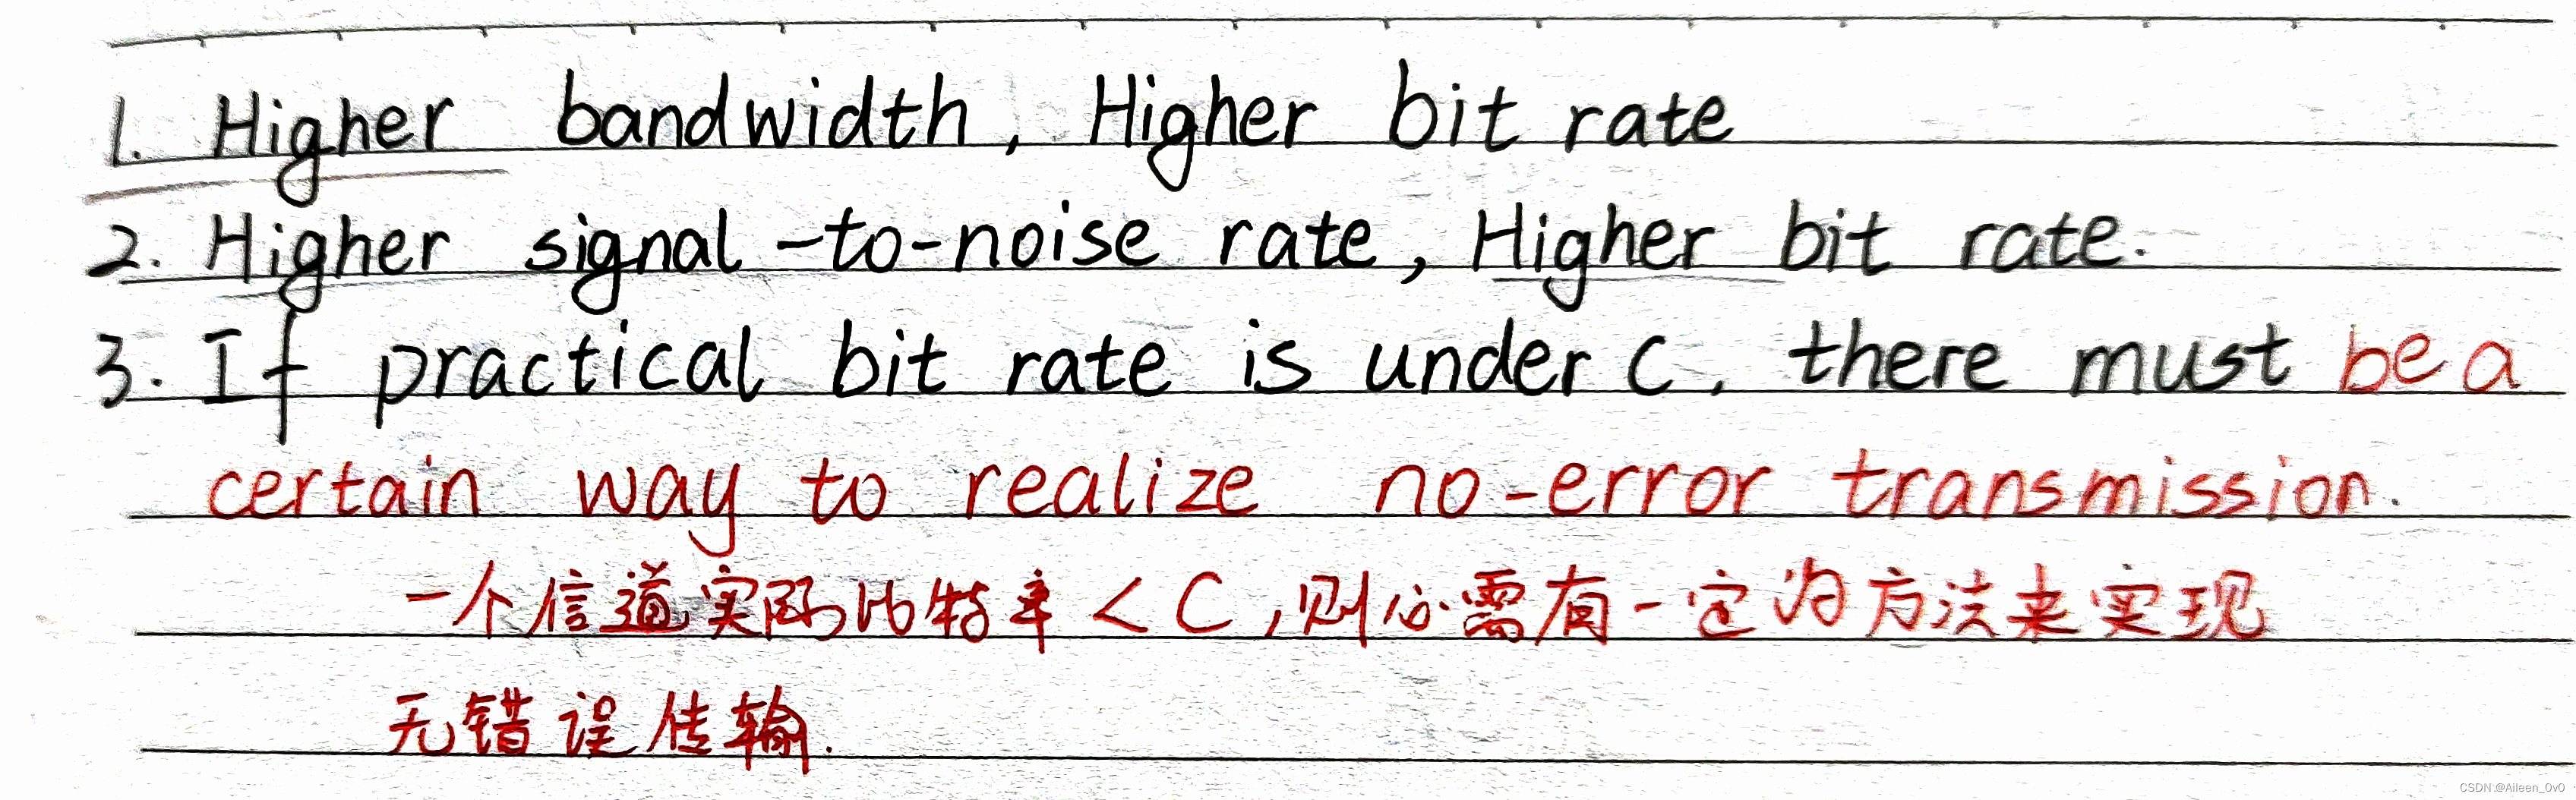 1. Higher bandwidth, Higher bit rate
2. Higher signal-to-noise rate, Higher bit rate.
3. If practical bit rate is under C, there must be a
certain way to realize no-error transmission.
一个信道实际比特率 < C, 则必需有一定的方法来实现
无错误传输.
CSDN @Aileen_0v0